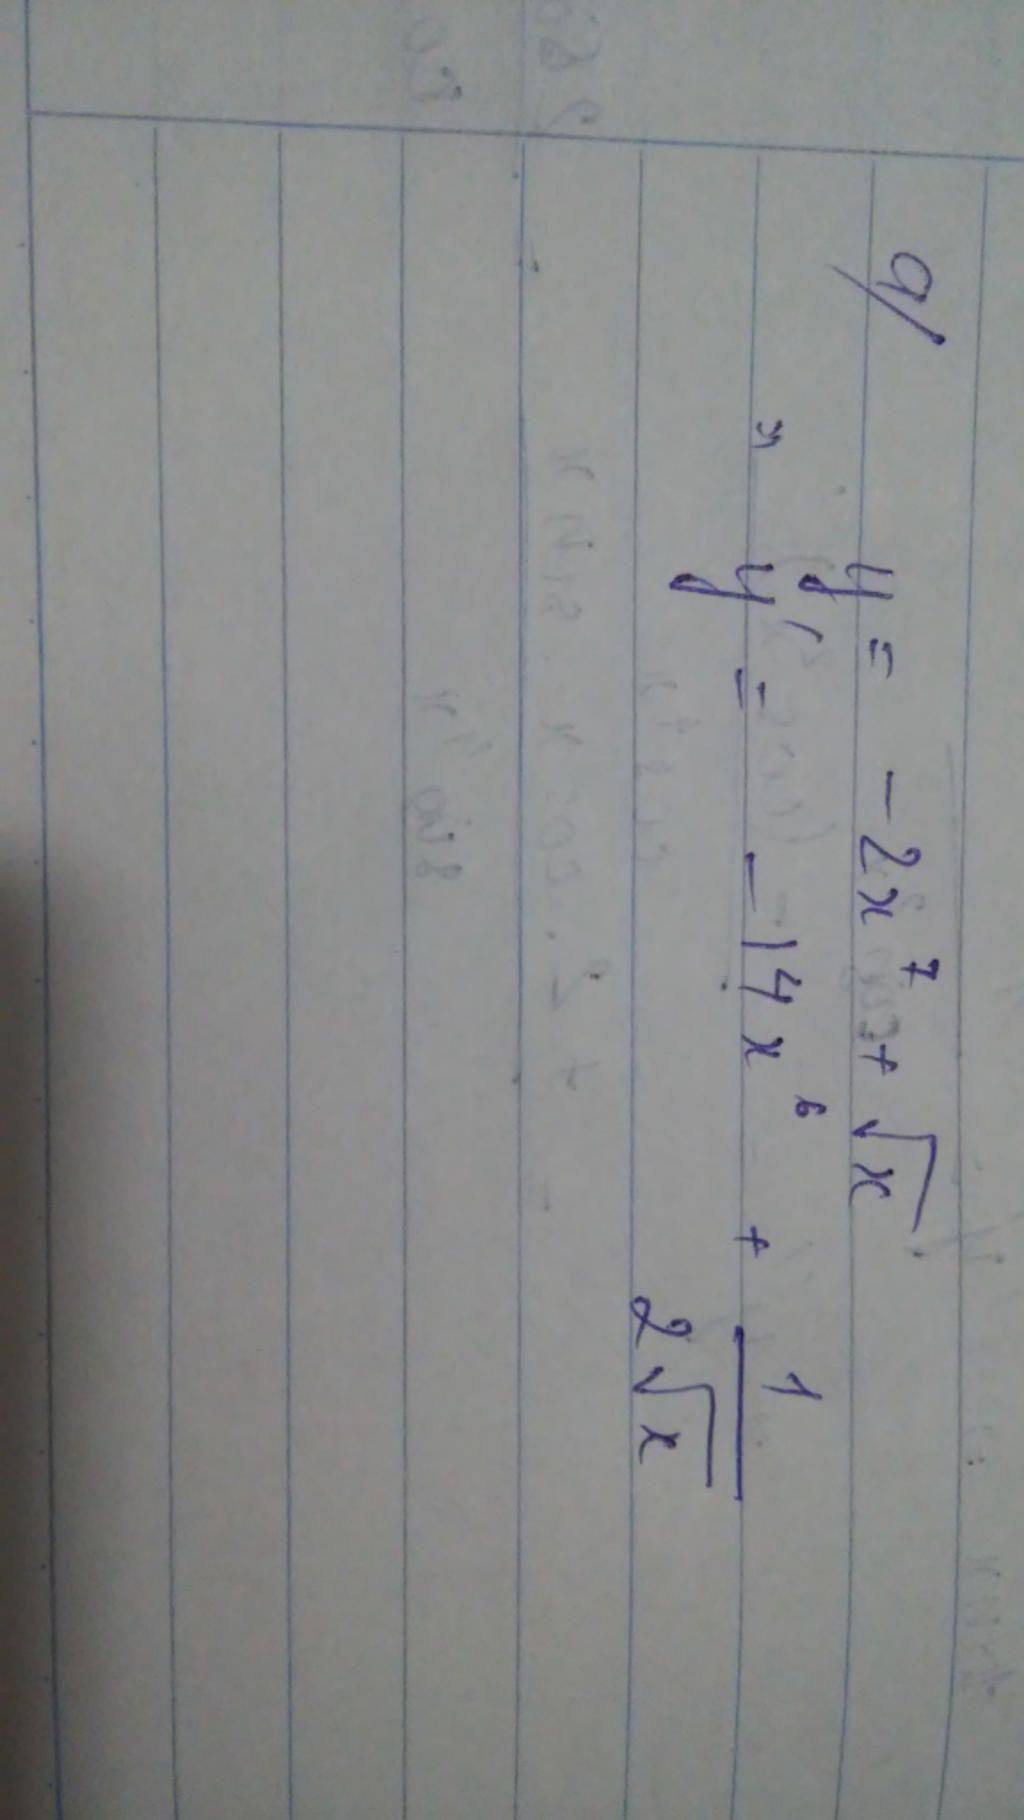 a/
y = -2x⁷ + √x
" y' = -14x⁶ + 1/(2√x)